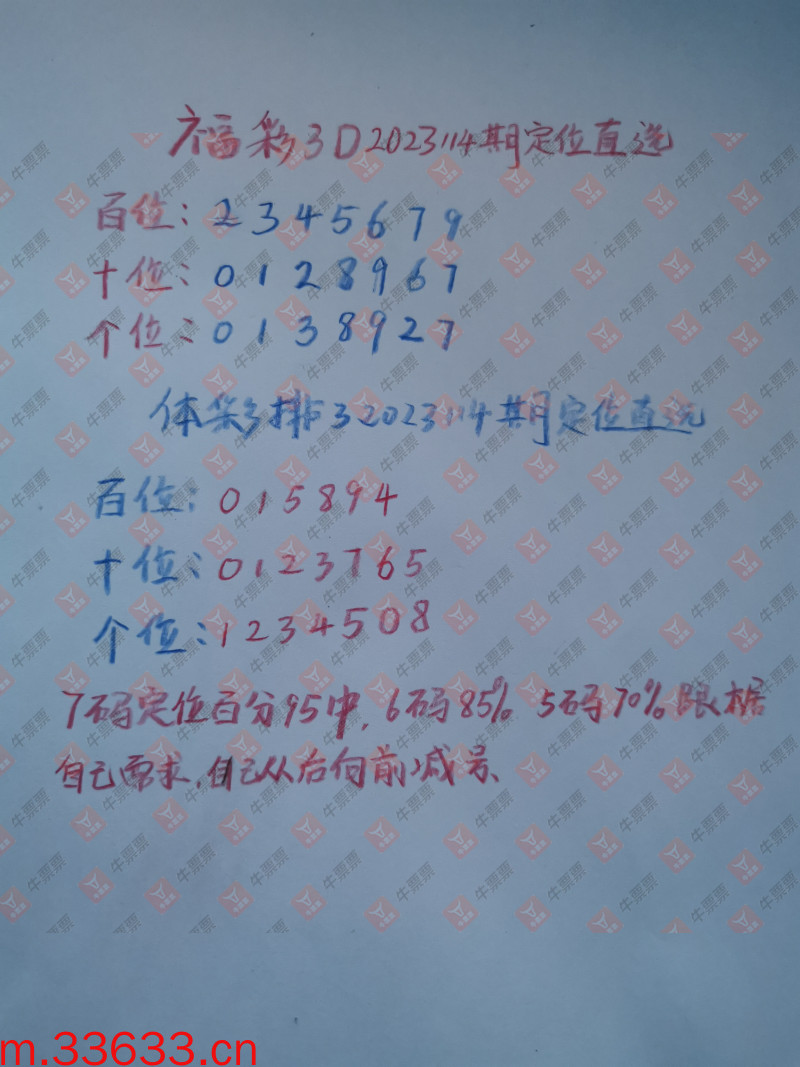 福彩3D2023114期定位直选
百位：2345679
十位：0128967
个位：0138927
体彩排32023114期定位直选
百位：015894
十位：0123765
个位：1234508
7码定位百分95中，6码85% 5码70% 跟据
自己需求，自己从后向前减号、
牛票票
m.33633.cn